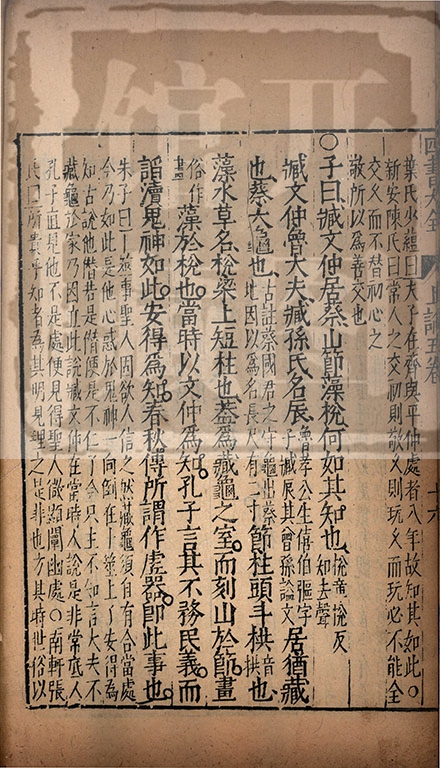 葉氏少蘊曰夫子在齊與平仲處者八年故知其如此○
新安陳氏曰常人之交初則敬久則玩久而玩必不能全
交久而不替初心之
敬所以爲善交也
○子曰臧文仲居蔡山節藻梲何如其知也
梲章悅反
知去聲
臧文仲魯大夫臧孫氏名辰
魯孝公生僖伯彄字
子臧辰其曾孫謚文
居猶藏
也蔡大龜也
古註蔡國君之守龜出蔡
地因以爲名長尺有二寸
節柱頭斗栱
音
栱
也
藻水草名梲梁上短柱也蓋爲藏龜之室而刻山於節畫
俗作
畵
藻於梲也當時以文仲爲知孔子言其不務民義而
諂瀆鬼神如此安得爲知春秋傳所謂作虛器即此事也
朱子曰卜筮事聖人固欲人信之然藏龜須自有合當處
今乃如此是他心惑於鬼神一向倒在卜筮上了安得爲
知古說他僭若是僭便是不仁了今只主不知言大夫不
藏龜於家乃因立此說臧文仲在當時人說是非常底人
孔子直見他不是處便見得聖人微顯闡幽處○南軒張
氏曰所貴乎知者爲其明見理之是非也方其時世俗以
四書大全
上論五卷
十六